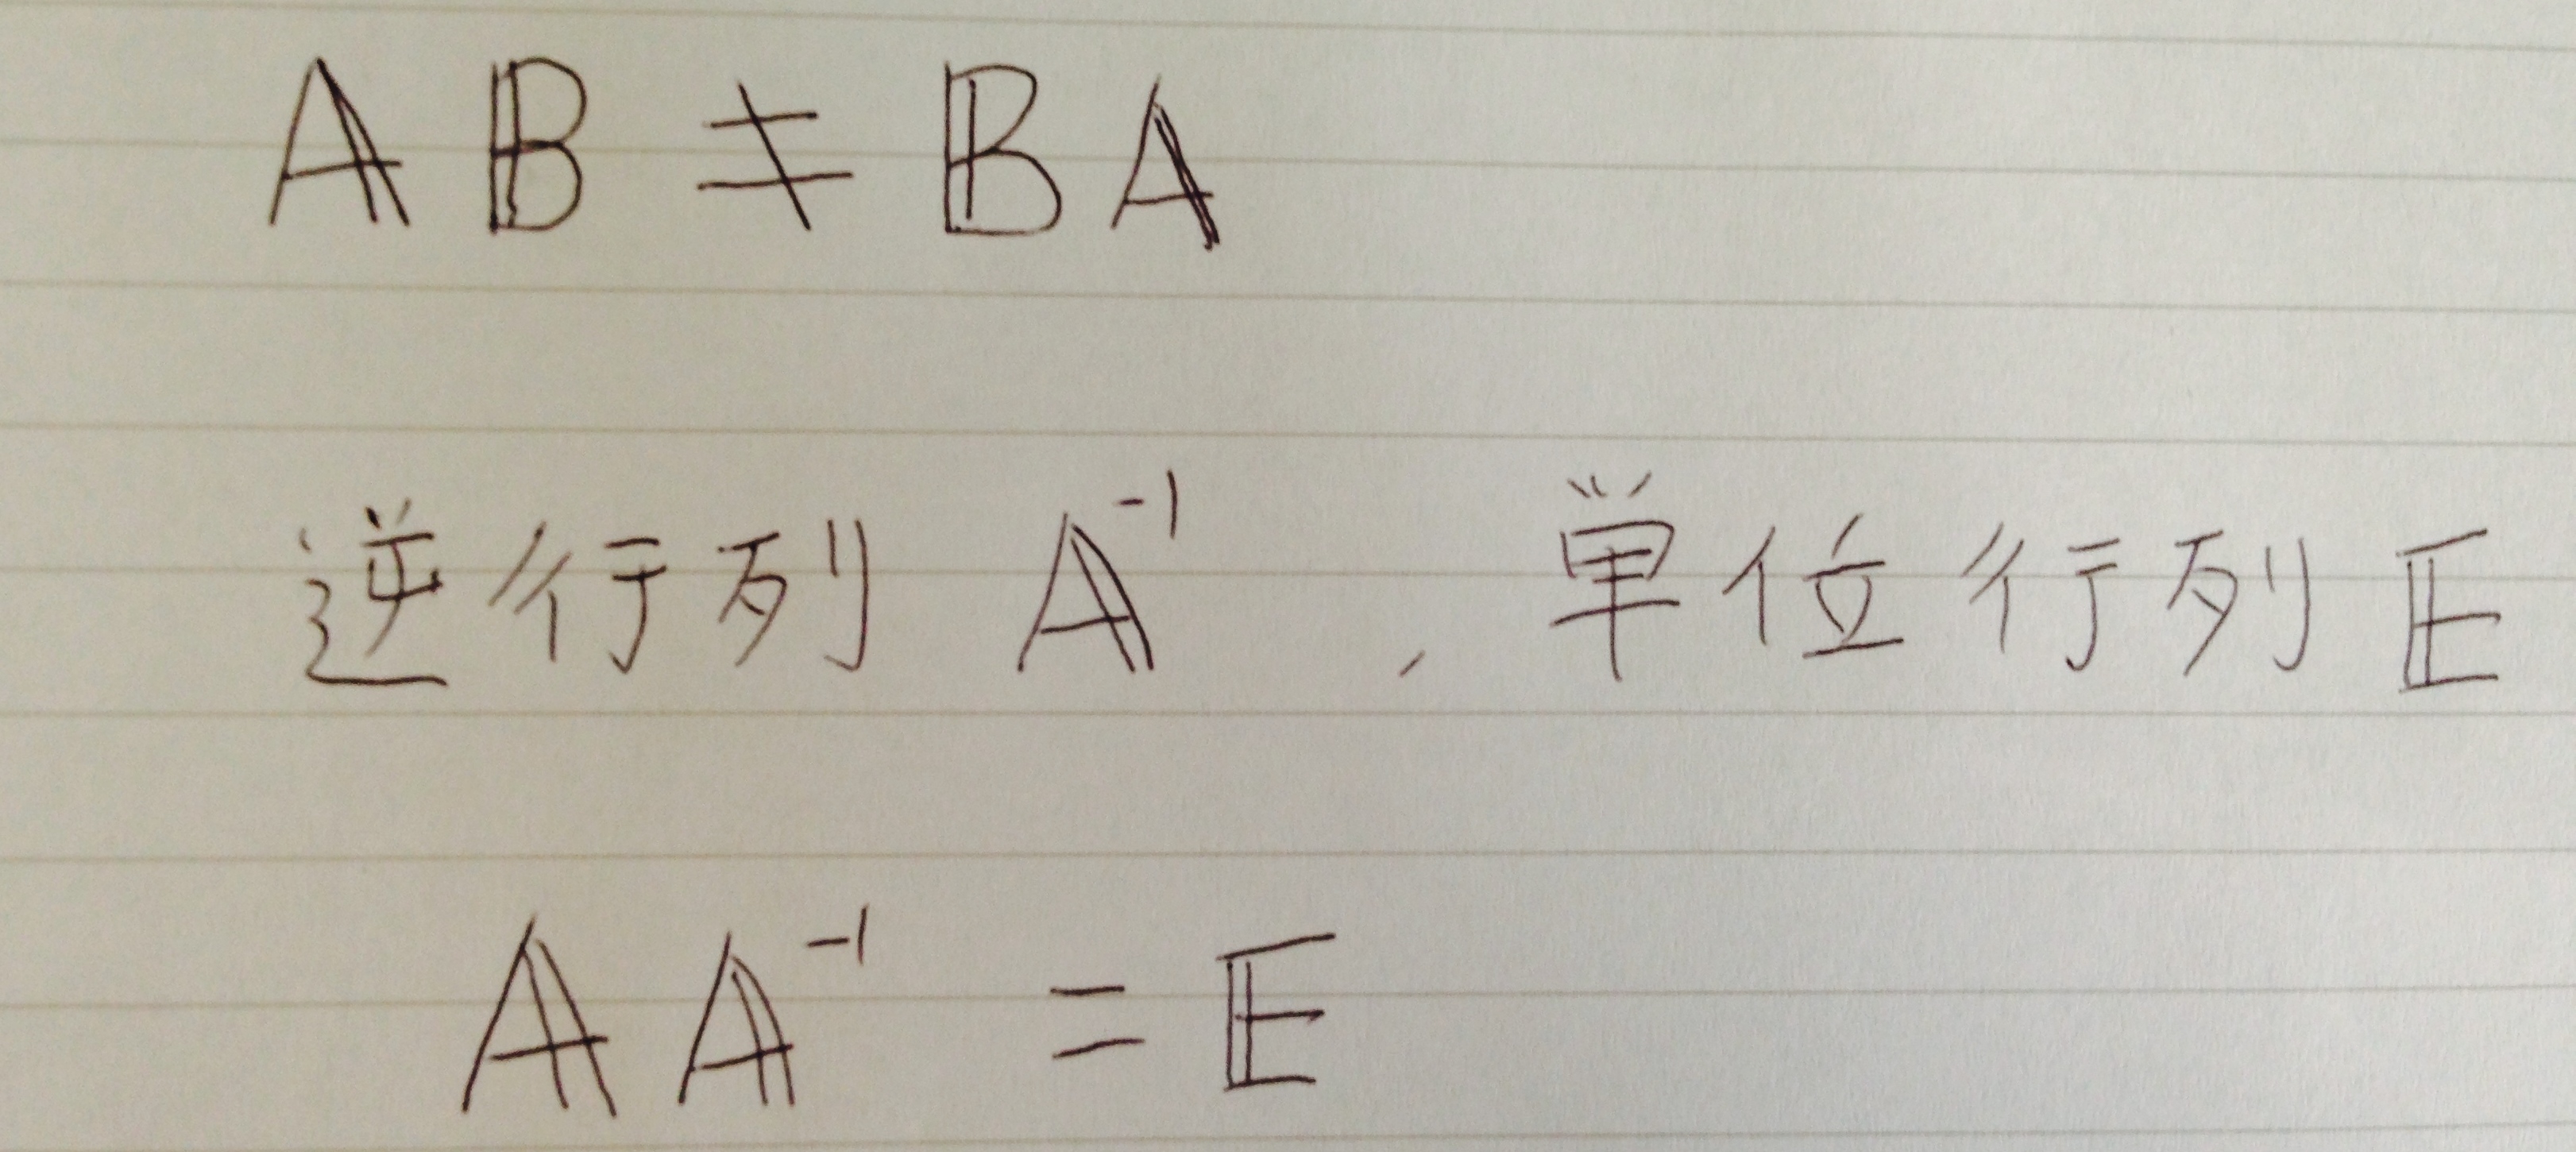 𝔸𝔹 ≠ 𝔹𝔸
逆行列 𝔸⁻¹ , 単位行列 𝔼
𝔸𝔸⁻¹ = 𝔼